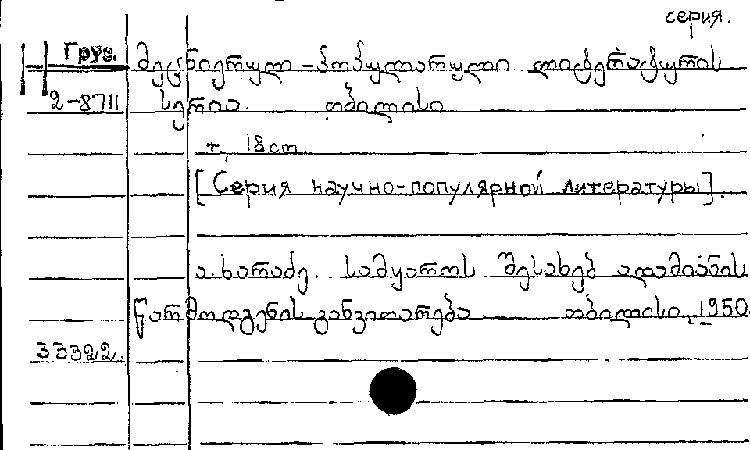 серия.
Груз. მეცნიერულ-პოპულარული ლიტერატურის
2-8711 სერია. თბილისი
т, 18 cm
[Серия научно-популярной литературы].
ა. ხარაძე. სამყაროს შესახებ ადამიანის
წარმოდგენის განვითარება თბილისი, 1950.
33322.